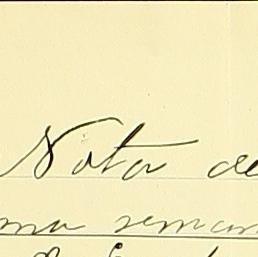 Nota de
ma seman